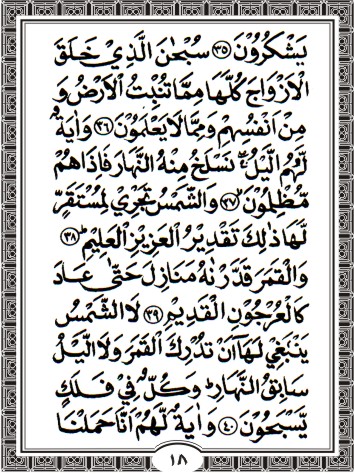 يَشْكُرُوْنَ ۝٣٥ سُبْحٰنَ الَّذِيْ خَلَقَ
الْاَزْوَاجَ كُلَّهَا مِمَّا تُنْۢبِتُ الْاَرْضُ وَ
مِنْ اَنْفُسِهِمْ وَمِمَّا لَا يَعْلَمُوْنَ ۝٣٦ وَاٰيَةٌ
لَّهُمُ الَّيْلُ ۖ نَسْلَخُ مِنْهُ النَّهَارَ فَاِذَا هُمْ
مُّظْلِمُوْنَ ۝٣٧ وَالشَّمْسُ تَجْرِيْ لِمُسْتَقَرٍّ
لَّهَا ذٰلِكَ تَقْدِيْرُ الْعَزِيْزِ الْعَلِيْمِ ۝٣٨
وَالْقَمَرَ قَدَّرْنٰهُ مَنَازِلَ حَتّٰى عَادَ
كَالْعُرْجُوْنِ الْقَدِيْمِ ۝٣٩ لَا الشَّمْسُ
يَنْۢبَغِيْ لَهَآ اَنْ تُدْرِكَ الْقَمَرَ وَلَا الَّيْلُ
سَابِقُ النَّهَارِ ؕ وَكُلٌّ فِيْ فَلَكٍ
يَّسْبَحُوْنَ ۝٤٠ وَاٰيَةٌ لَّهُمْ اَنَّا حَمَلْنَا
١٨